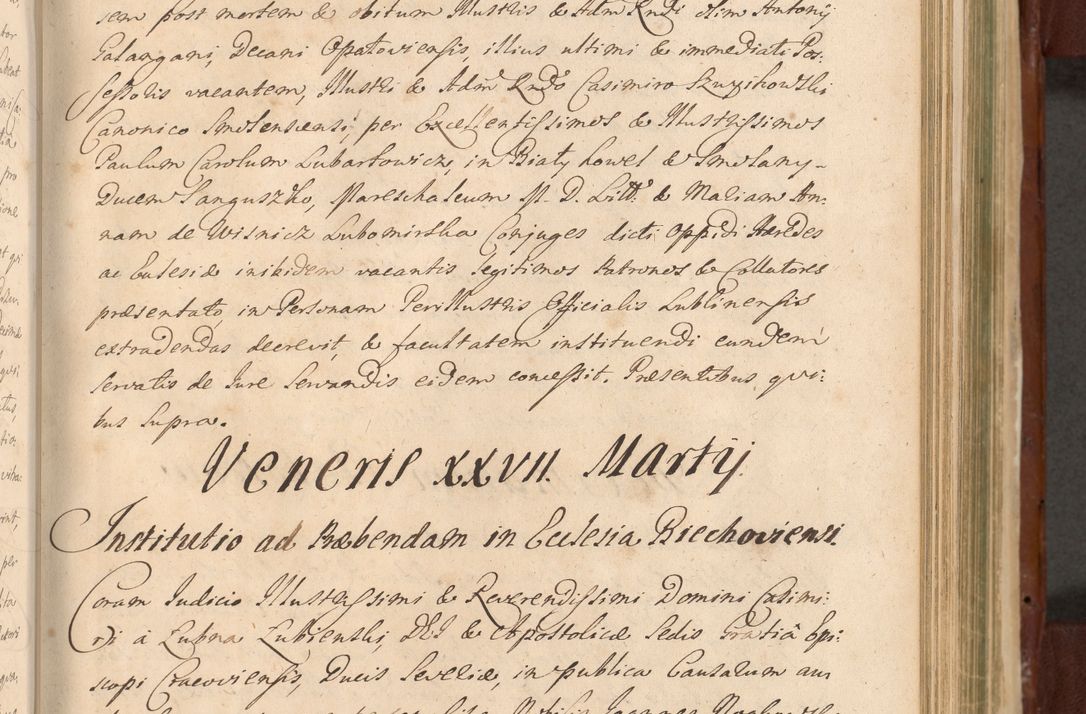 sem post mortem & obitum Illustris & Adm Rndi olim Antonij
Galangani, Decani Opatoviensis, illius ultimi & immediati Pos:
sessoris vacantem, Illustri & Adm Rndo Casimiro
Canonico Smolenscensi, per Excellentissimos & Illustrissimos
Paulum Carolum Lubartowicz, in Biały Kowel & Smolany
Ducem Sanguszko, Mareschalcum M. D. Litt. & Mariam An:
nam de Wisnicz Lubomirska Conjuges dicti Oppidi Hæredes
ac Eclesiæ inibidem vacantis legitimos Patronos & Collatores
præsentato, in Personam Perillustris Officialis Lublinensis
extradendas decrevit, & facultatem instituendi eundem
servatis de Jure servandis eidem concessit. Præsentibus qvi:
bus supra.
Veneris XXVII. Martij.
Institutio ad Præbendam in Eclesia Biechoviensi.
Coram Judicio Illustrissimi & Reverendissimi Domini Casimi:
ri à Łubna Łubienski, DEI & Apostolicæ Sedis Gratiâ Epi:
scopi Cracoviensis, Ducis Severiæ, in publica Causarum au